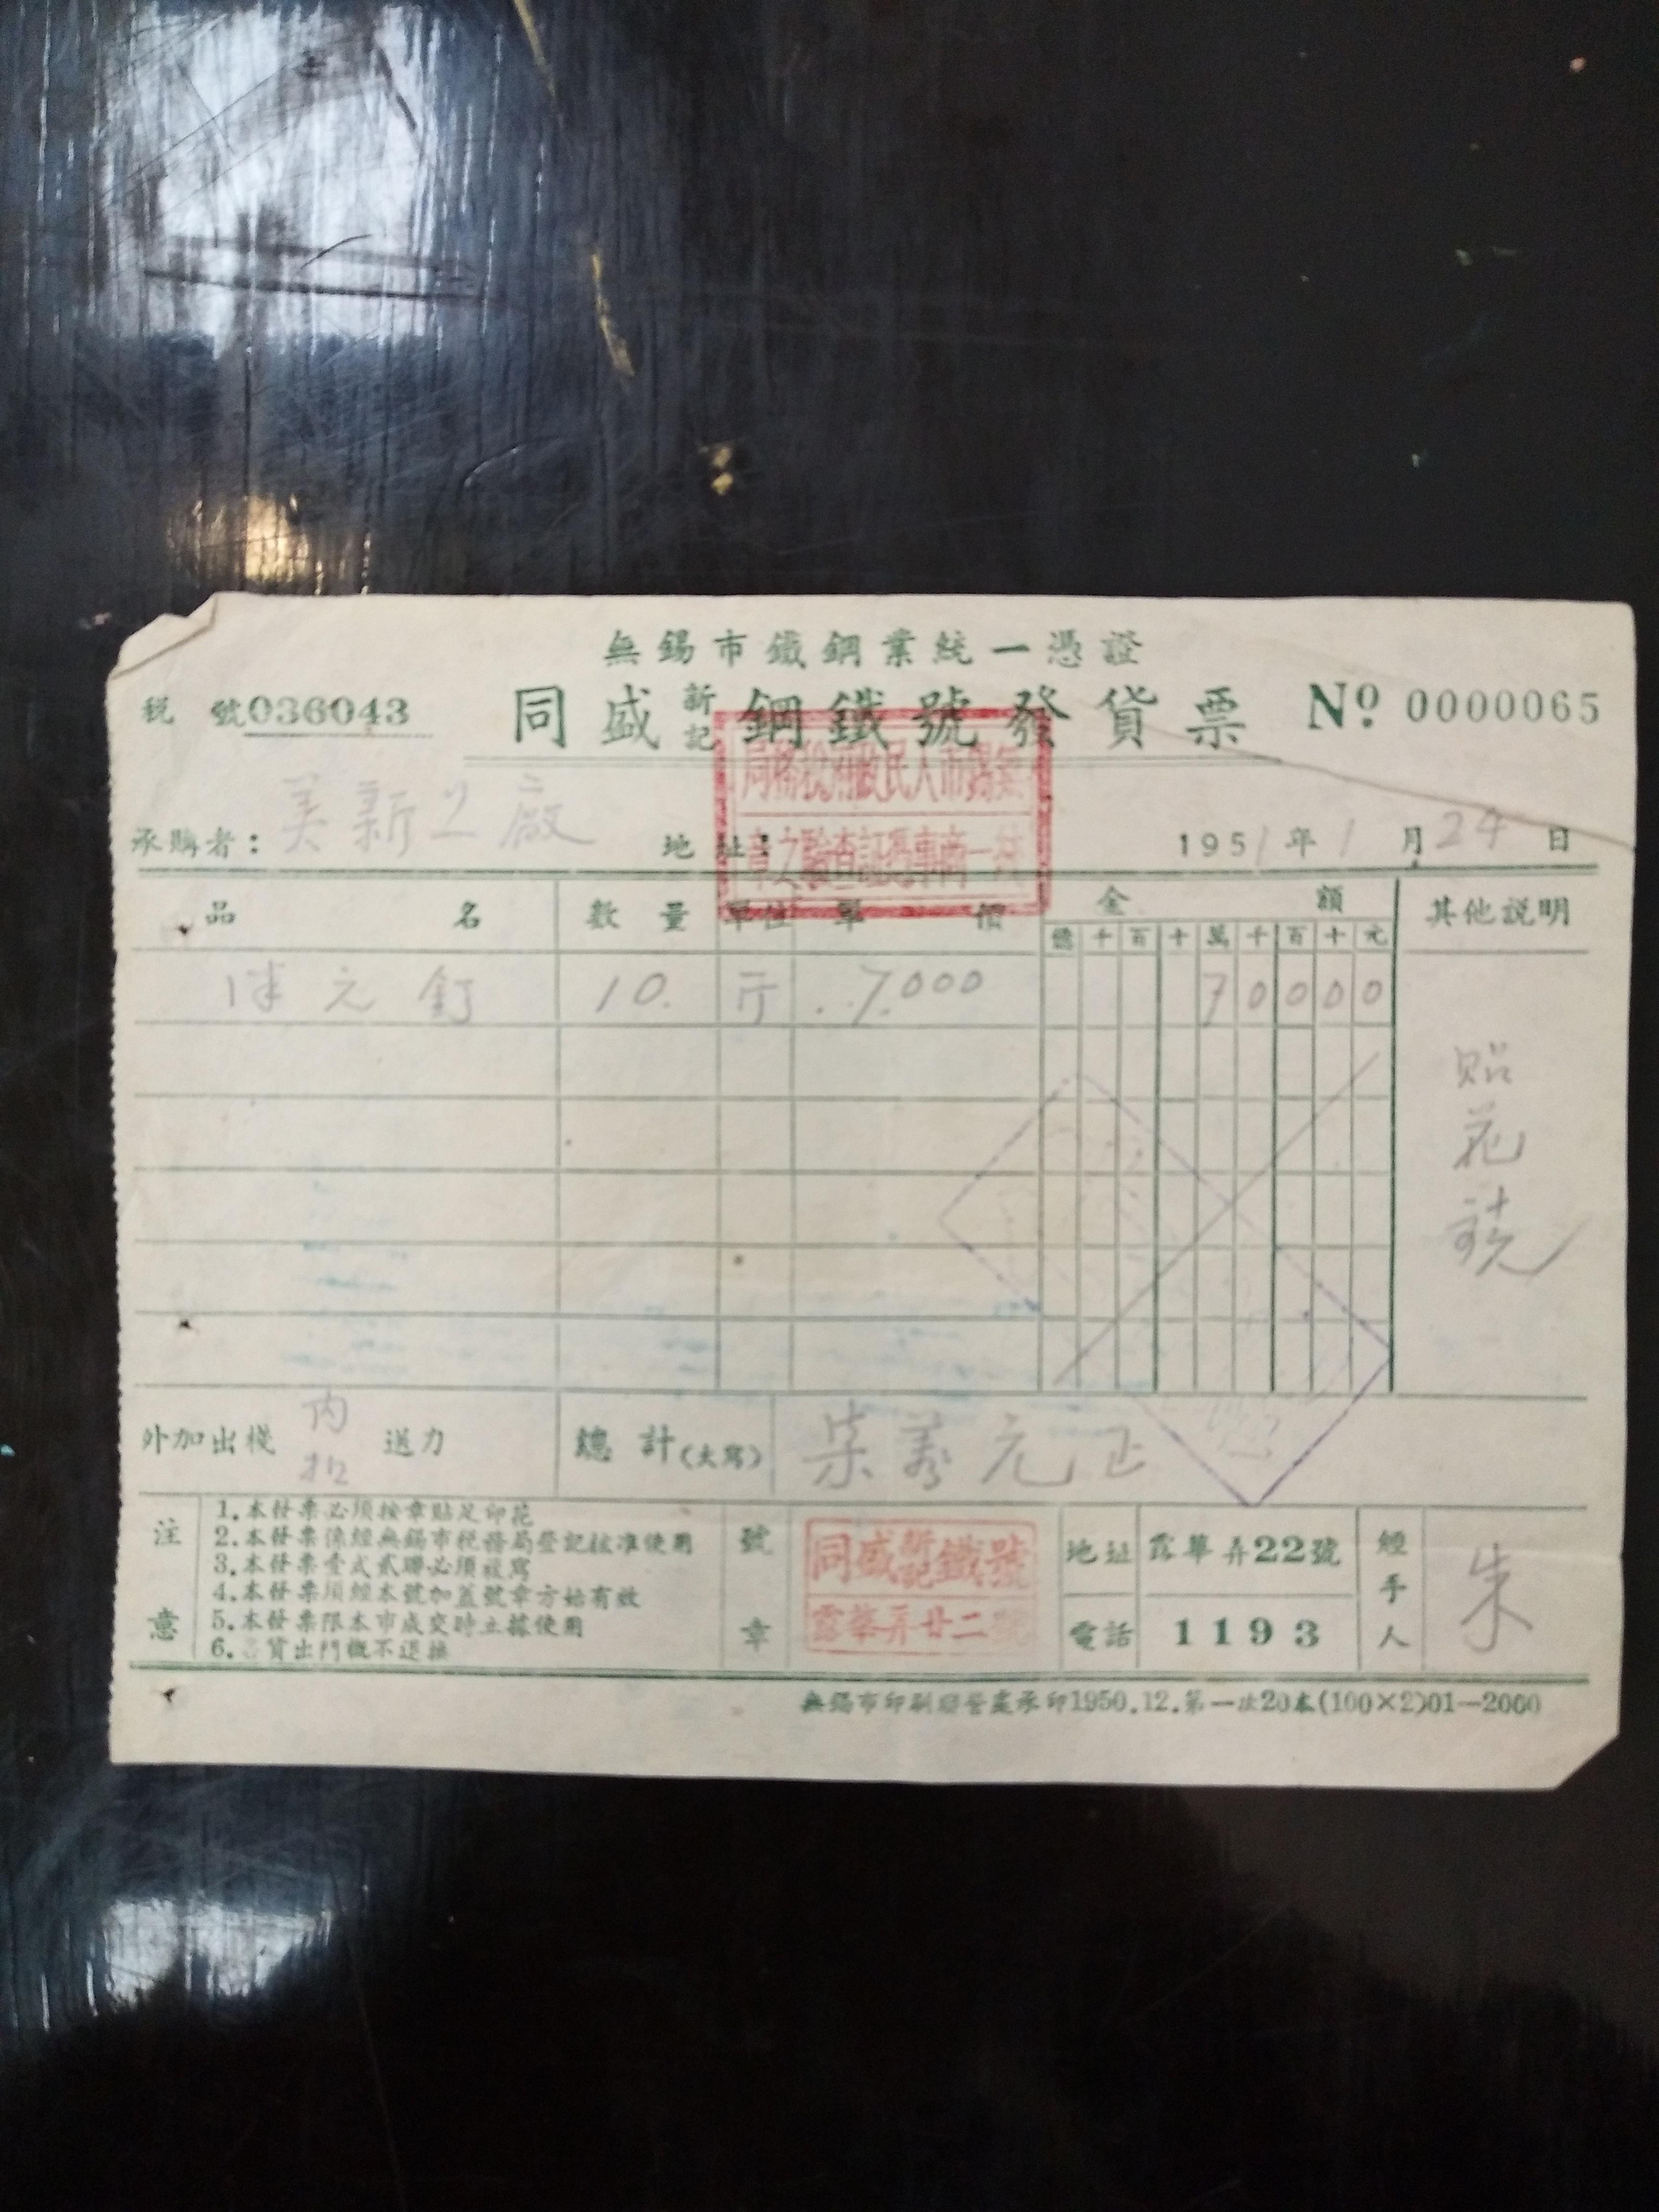 無錫市鐵鋼業統一憑證
稅號036043
同盛新記鋼鐵號發貨票
No. 0000065
無錫市人民政府稅務局
統一商事憑証查驗之章
承購者：美新工廠 地址： 1951年1月24日
品名 數量 單位 單價 金額 其他說明
億千百十萬千百十元
元釘 10. 斤 7.000 70000
貼花訖
外加出棧 內扣 送力 總計(大寫) 柒萬元正
注意
1.本發票必須按章貼足印花
2.本發票係經無錫市稅務局登記核准使用
3.本發票壹式貳聯必須複寫
4.本發票須經本號加蓋號章方始有效
5.本發票限本市成交時立據使用
6.貨出門概不退換
號章
同盛新記鐵號
露華弄廿二號
地址 露華弄22號
電話 1193
經手人 朱
無錫市印刷聯營處承印1950.12.第一次20本(100×2)01—2000